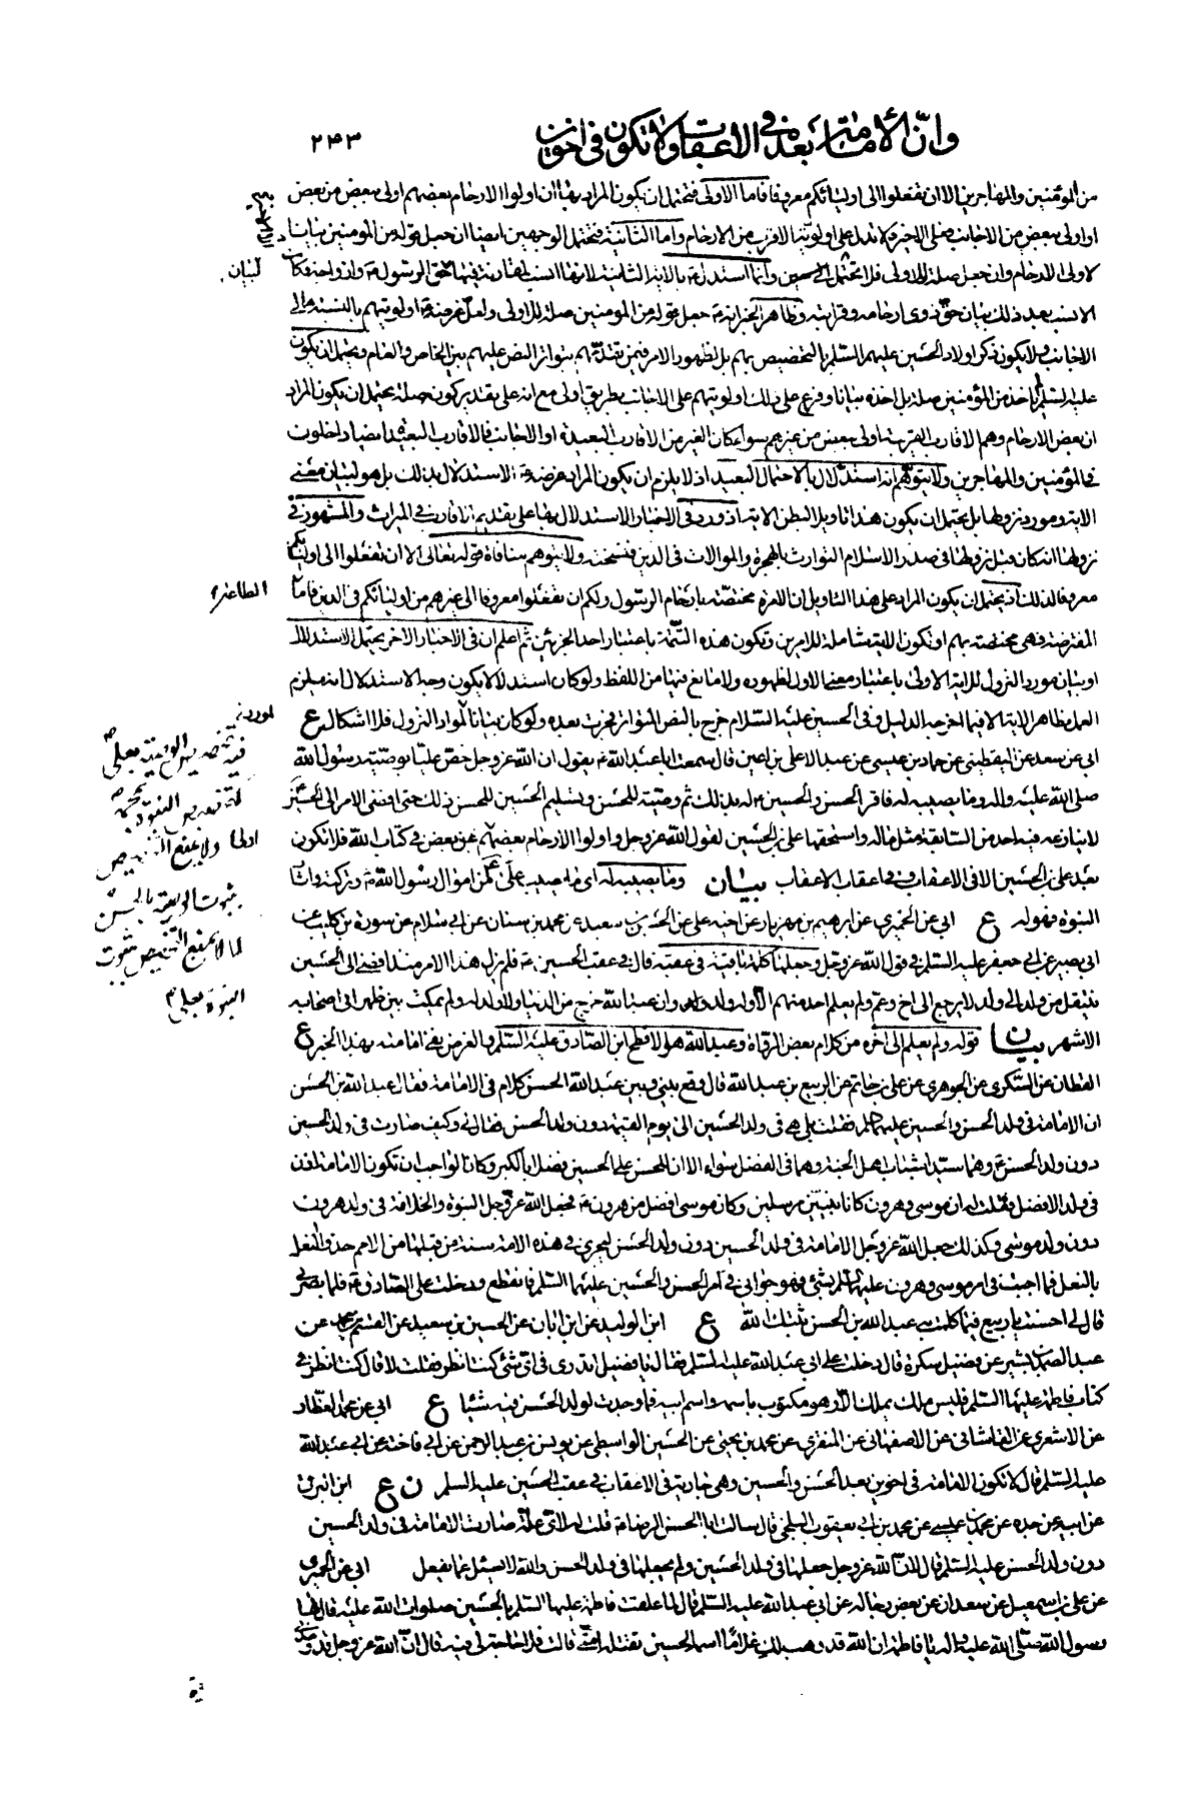 وانّ الأمامة بعدهما في الاعقاب ولا تكون في اخوين
۲۴۳
من المؤمنين والمهاجرين الا ان تفعلوا الى اوليائكم معروفا فاما الاولى فتحتمل ان يكون المراد بها ان اولوا الارحام بعضهم اولى ببعض من بعض
او اولى ببعض من الاجانب فعلى الاخير لا تدل على اولوية الاقرب من الارحام واما الثانية فتحتمل الوجهين ايضا ان جعل قوله من المؤمنين بيانا
لاولى الارحام وان جعل صلة للاولى فلا تحتمل الا الاخير وانما استدل ع بالاية الثانية لانها انسب لمقارنته فيها لحق الرسول ص وازواجه فكان
الانسب بعد ذلك بيان حق ذوى ارحامه وقرابته وظاهر الخبر انه ع جعل قوله من المؤمنين صلة للاولى ولعل غرضه ع اولويتهم بالنسبة الى
الاجانب ولا يكون ذكر اولاد الحسين عليهم السلم للتخصيص بهم بل لظهور الامر فيمن تقدمهم بتواتر النص عليهم بين الخاص والعام ويحتمل ان يكون
عليه السلم لم ياخذ من المؤمنين صلة بل اخذه بيانا وفرع على ذلك اولويتهم على الاجانب بطريق اولى مع انه على تقدير كونه صلة يحتمل ان يكون المراد
ان بعض الارحام وهم الاقارب القريبة اولى ببعض من غيرهم سواء كان الغير من الاقارب البعيدة او الاجانب فالاقارب البعيدة ايضا داخلون
في المؤمنين والمهاجرين ولا يتوهم انه استدلال بالاحتمال البعيد اذ لا يلزم ان يكون المراد غرضه ع الاستدلال بذلك بل هو لبيان معنى
الاية ومورد نزولها بل يحتمل ان يكون هذا تاويلا لبطن الاية اذ ورد في الاخبار الاستدلال بها على تقديم الاقارب في الميراث والمشهور في
نزولها انه كان قبل نزولها في صدر الاسلام التوارث بالهجرة والموالات في الدين فنسخته ولا يتوهم منافاة قوله تعالى الا ان تفعلوا الى اوليائكم
معروفا لذلك اذ يحتمل ان يكون المراد على هذا التاويل ان الامرة مختصة بارحام الرسول ولكم ان تفعلوا معروفا الى غيرهم من اوليائكم في الدين فاما
الطاعة
المفترضة فهى مختصة بهم او تكون الاية شاملة للامرين وتكون هذه التتمة باعتبار احد الجزئين ثم اعلم ان في الاخبار الاخر يحتمل الاستدلال
او بيان مورد النزول للاية الاولى باعتبار معنى الاول لظهوره ولا مانع فيها من اللفظ ولو كان استدلالا يكون وجه الاستدلال انه يلزم
العمل بظاهر الاية الا فيما اخرجه الدليل وفي الحسين عليه السلام خرج بالنص المتواتر فجرت بعده ولو كان بيانا لمورد النزول فلا اشكال ع
ابي عن سعد عن اليقطيني عن حماد بن عيسى عن عبد الاعلى بن اعين قال سمعت ابا عبد الله ع يقول ان الله عز وجل خص عليا بوصية رسول الله
صلى الله عليه واله وما يصيبه له فاقر الحسن والحسين ع له بذلك ثم وصيته للحسن وتسليم الحسين للحسن ذلك حتى افضى الامر الى الحسين
لا ينازعه فيه احد من السابقة مثل ماله واستحقها علي بن الحسين لقول الله عز وجل واولوا الارحام بعضهم اولى ببعض في كتاب الله فلا تكون
بعد علي بن الحسين الا في الاعقاب وفي اعقاب الاعقاب بيان وما يصيبه له اى
النبوة فهو له ع ابي عن الحميري عن ابراهيم بن مهزيار عن اخيه علي عن الحسين بن سعيد عن محمد بن سنان عن ابي سلام عن سورة بن كليب عن
ابي بصير عن ابي جعفر عليه السلم في قول الله عز وجل وجعلها كلمة باقية في عقبه قال في عقب الحسين ع فلم يزل هذا الامر منذ افضى الى الحسين
ينتقل من ولد الى ولد لا يرجع الى اخ وعم ولم يعلم احد منهم الا وله ولد وان عبد الله خرج من الدنيا ولا ولد له ولم يمكث بين ظهراني اصحابه
الا شهرا بيان قوله ولم يعلم الى اخره من كلام بعض الرواة وعبد الله هو الافطح ابن الصادق عليه السلم والغرض نفي امامته بهذا الخبر ع
القطان عن السكري عن الجوهري عن علي بن حاتم عن الربيع بن عبد الله قال وقع بيني وبين عبد الله الحسن كلام في الامامة فقال عبد الله بن الحسن
ان الامامة في ولد الحسن والحسين عليهما السلم فقلت بلى هي في ولد الحسين الى يوم القيمة دون ولد الحسن فقال لي وكيف صارت في ولد الحسين
دون ولد الحسن ع وهما سيدا شباب اهل الجنة وهما في الفضل سواء الا ان للحسن على الحسين فضلا بالكبر وكان الواجب ان تكون الامامة اذن
في ولد الافضل فقلت له ان موسى وهرون كانا نبيين مرسلين وكان موسى افضل من هرون ع فجعل الله عز وجل النبوة والخلافة في ولد هرون
دون ولد موسى وكذلك جعل الله عز وجل الامامة في ولد الحسين دون ولد الحسن ليجري في هذه الامة سنة من قبلها من الامم حذو النعل
بالنعل فما اجبت في امر موسى وهرون عليهما السلم بشئ فهو جوابي في امر الحسن والحسين عليهما السلم فانقطع ودخلت على الصادق ع فلما بصر بي
قال لي احسنت يا ربيع فيما كلمت به عبد الله بن الحسن ثبتك الله ع ابن الوليد عن ابن ابان عن الحسين بن سعيد عن القسم بن محمد عن
عبد الصمد بن بشير عن فضيل سكرة قال دخلت على ابي عبد الله عليه السلم فقال يا فضيل اتدري في اي شئ كنت انظر فقلت لا قال كنت انظر في
كتاب فاطمة عليها السلم فليس ملك يملك الا وهو مكتوب باسمه واسم ابيه فما وجدت لولد الحسن فيه شيئا ع ابي عن محمد العطار
عن الاشعري عن القاشاني عن الاصفهاني عن المنقري عن محمد بن يحيى عن الحسين الواسطي عن يونس بن عبد الرحمن عن ابي فاختة عن ابي عبد الله
عليه السلم قال لا تكون الامامة في اخوين بعد الحسن والحسين وهى جارية في الاعقاب في عقب الحسين عليه السلم ن ع ابن البرقي
عن ابيه عن جده عن محمد بن عيسى عن محمد بن ابي يعقوب البلخي قال سالت ابا الحسن الرضا ع قلت له لاي علة صارت الامامة في ولد الحسين
دون ولد الحسن عليه السلم قال لان الله عز وجل جعلها في ولد الحسين ولم يجعلها في ولد الحسن والله لا يسئل عما يفعل ابي عن الحميري
عن علي بن اسمعيل عن سعدان عن بعض رجاله عن ابي عبد الله عليه السلم قال لما علقت فاطمة عليها السلم بالحسين صلوات الله عليه قال لها
رسول الله صلى الله عليه واله يا فاطمة ان الله قد وهب لك غلاما اسمه الحسين تقتله امتي قالت فلا حاجة لي فيه قال ان الله عز وجل قد وعدني
فيه